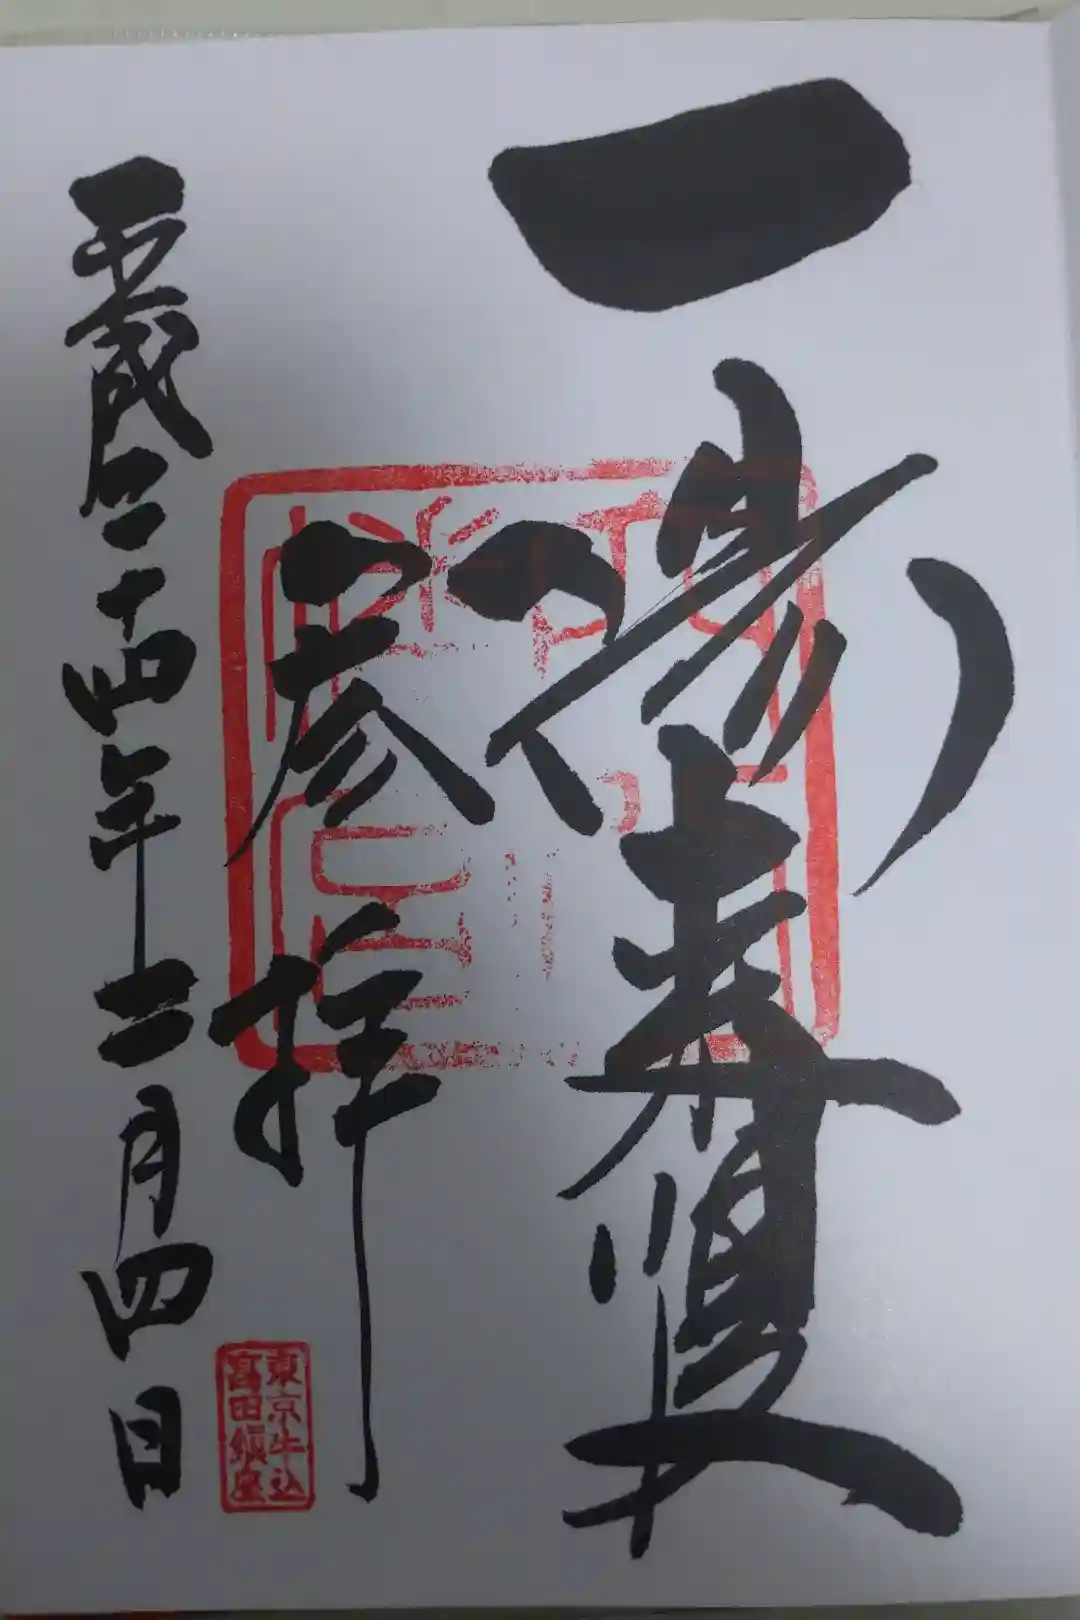 一陽来復
参拝
平成二十四年二月四日
東京牛込
高田鎭座